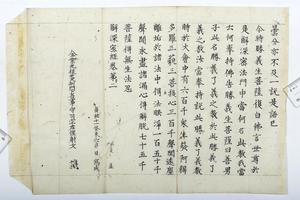 曇分亦不及一說是語已
尒時勝義生菩薩復白佛言世尊於
是解深密法門中當何名此教我當
云何奉持佛告勝義生菩薩曰善男
子此名勝義了義之教於此勝義了
義之教汝當奉持說此勝義了義教
時於大會中有六百千衆生發阿耨
多羅三藐三菩提心三百千聲聞遠塵
離垢於諸法中得法眼淨一百五十千
聲聞永盡諸漏心得解脫七十五千
菩薩得無生法忍
解深密經卷第二